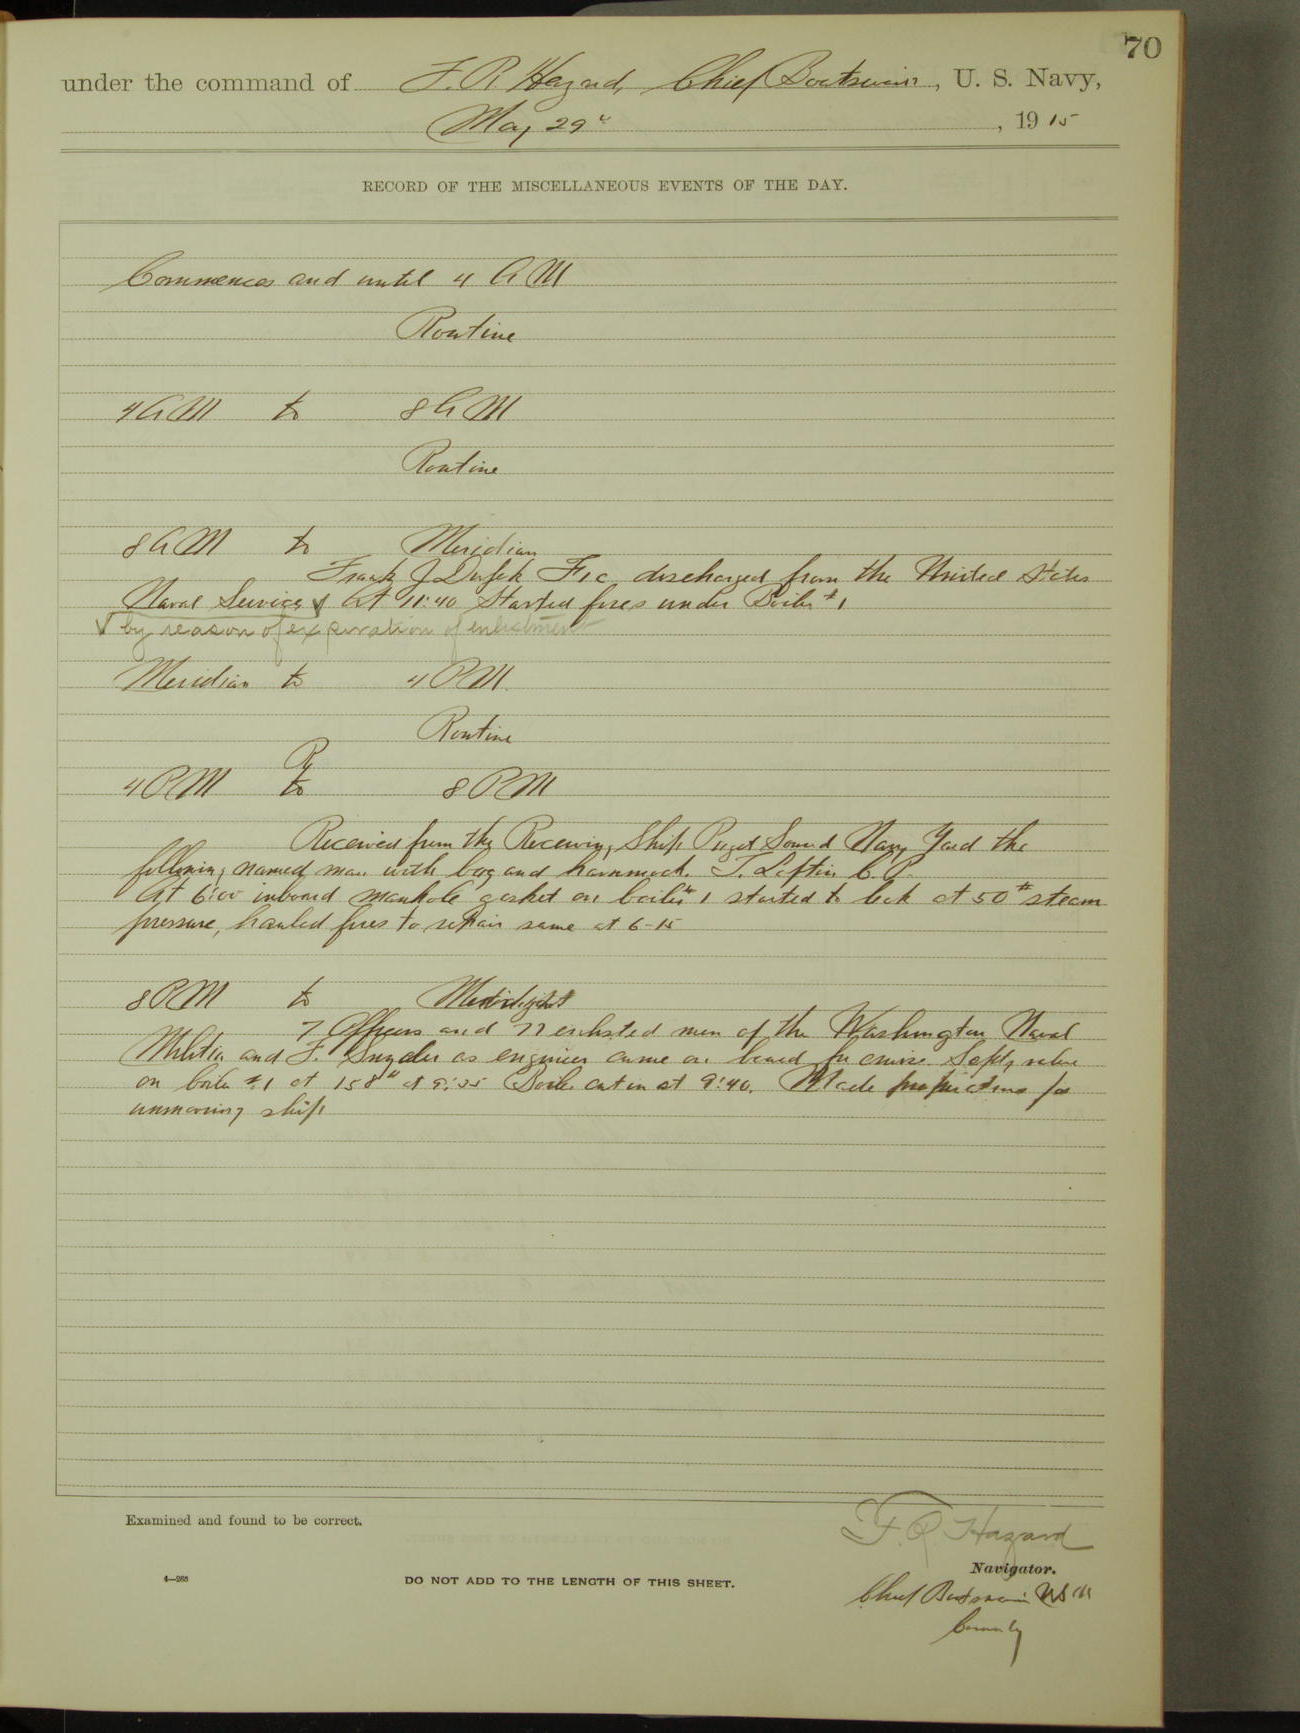 70
under the command of F. R. Hazard, Chief Boatswain, U. S. Navy,
May 29", 1915
RECORD OF THE MISCELLANEOUS EVENTS OF THE DAY.
Commences and until 4 A M
Routine
4 A M to 8 A M
Routine
8 A M to Meridian
Frank J. F1c, discharged from the United States
Naval Service √ At 11:40 Started fires under Boiler #1
√ by reason of expiration of enlistment
Meridian to 4 P M.
Routine
4 P M to 8 P M
Received from the Receiving Ship Puget Sound Navy Yard the
following named man with bag and hammock. T. Loftin C.P.
At 6:00 inboard manhole gasket on boiler #1 started to leak at 50# steam
pressure, hauled fires to repair same at 6-15
8 P M to Midnight
7 Officers and 72 enlisted men of the Washington Naval
Militia and F. Snyder as engineer came on board for cruise. Safety valve
on boiler #1 at 158# at 9:35 Boiler cut in at 9:40. Made preparations for
unmooring ship
Examined and found to be correct.
F. R. Hazard
Navigator.
4—265
DO NOT ADD TO THE LENGTH OF THIS SHEET.
Chief Boatswain U S N
Comm'd'g